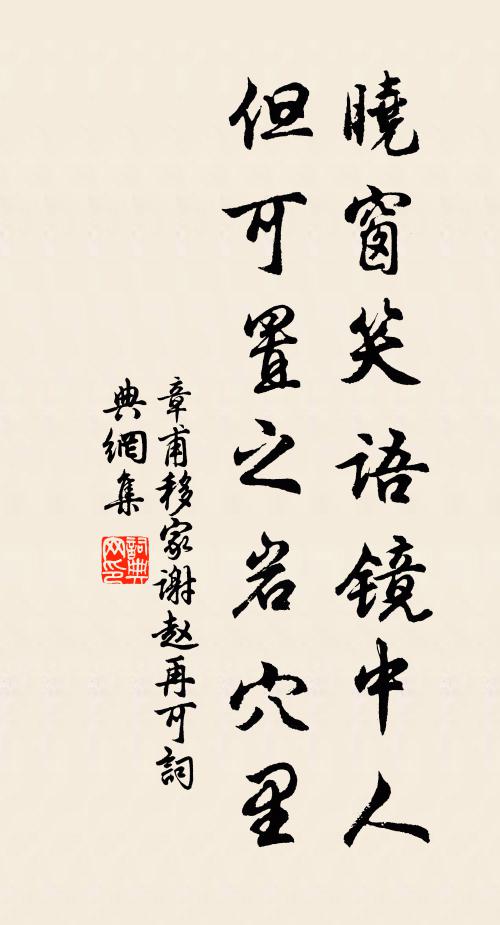 曉窗笑語鏡中人
但可置之岩穴里
章甫移家谢赵再可詞
典網集
詞典网印